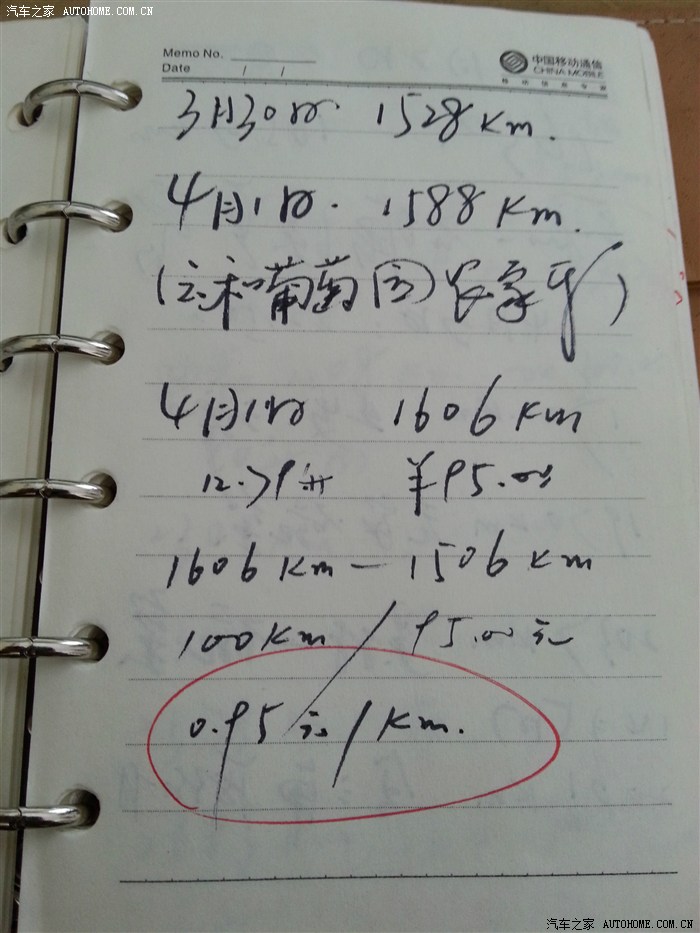 汽车之家 AUTOHOME.COM.CN
Memo No.
Date / /
中国移动通信
CHINA MOBILE
3月30日. 1528 Km.
4月1日. 1588 Km.
(云和葡萄园)农家乐)
4月1日 1606 Km
12.79升 ¥95.00
1606 Km — 1506 Km
100 Km / 95.00元
0.95元/Km.
汽车之家 AUTOHOME.COM.CN